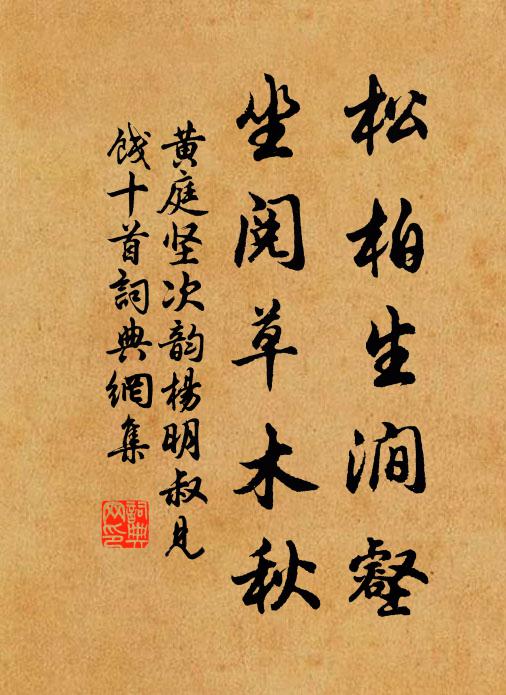 松柏生涧壑
坐阅草木秋
黄庭坚次韵杨明叔见
饯十首詞典網集
詞典網印